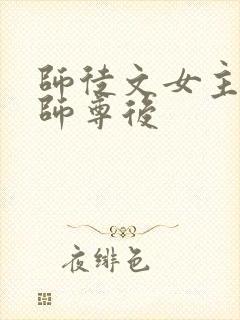 師徒文女主
師尊後
夜緋色